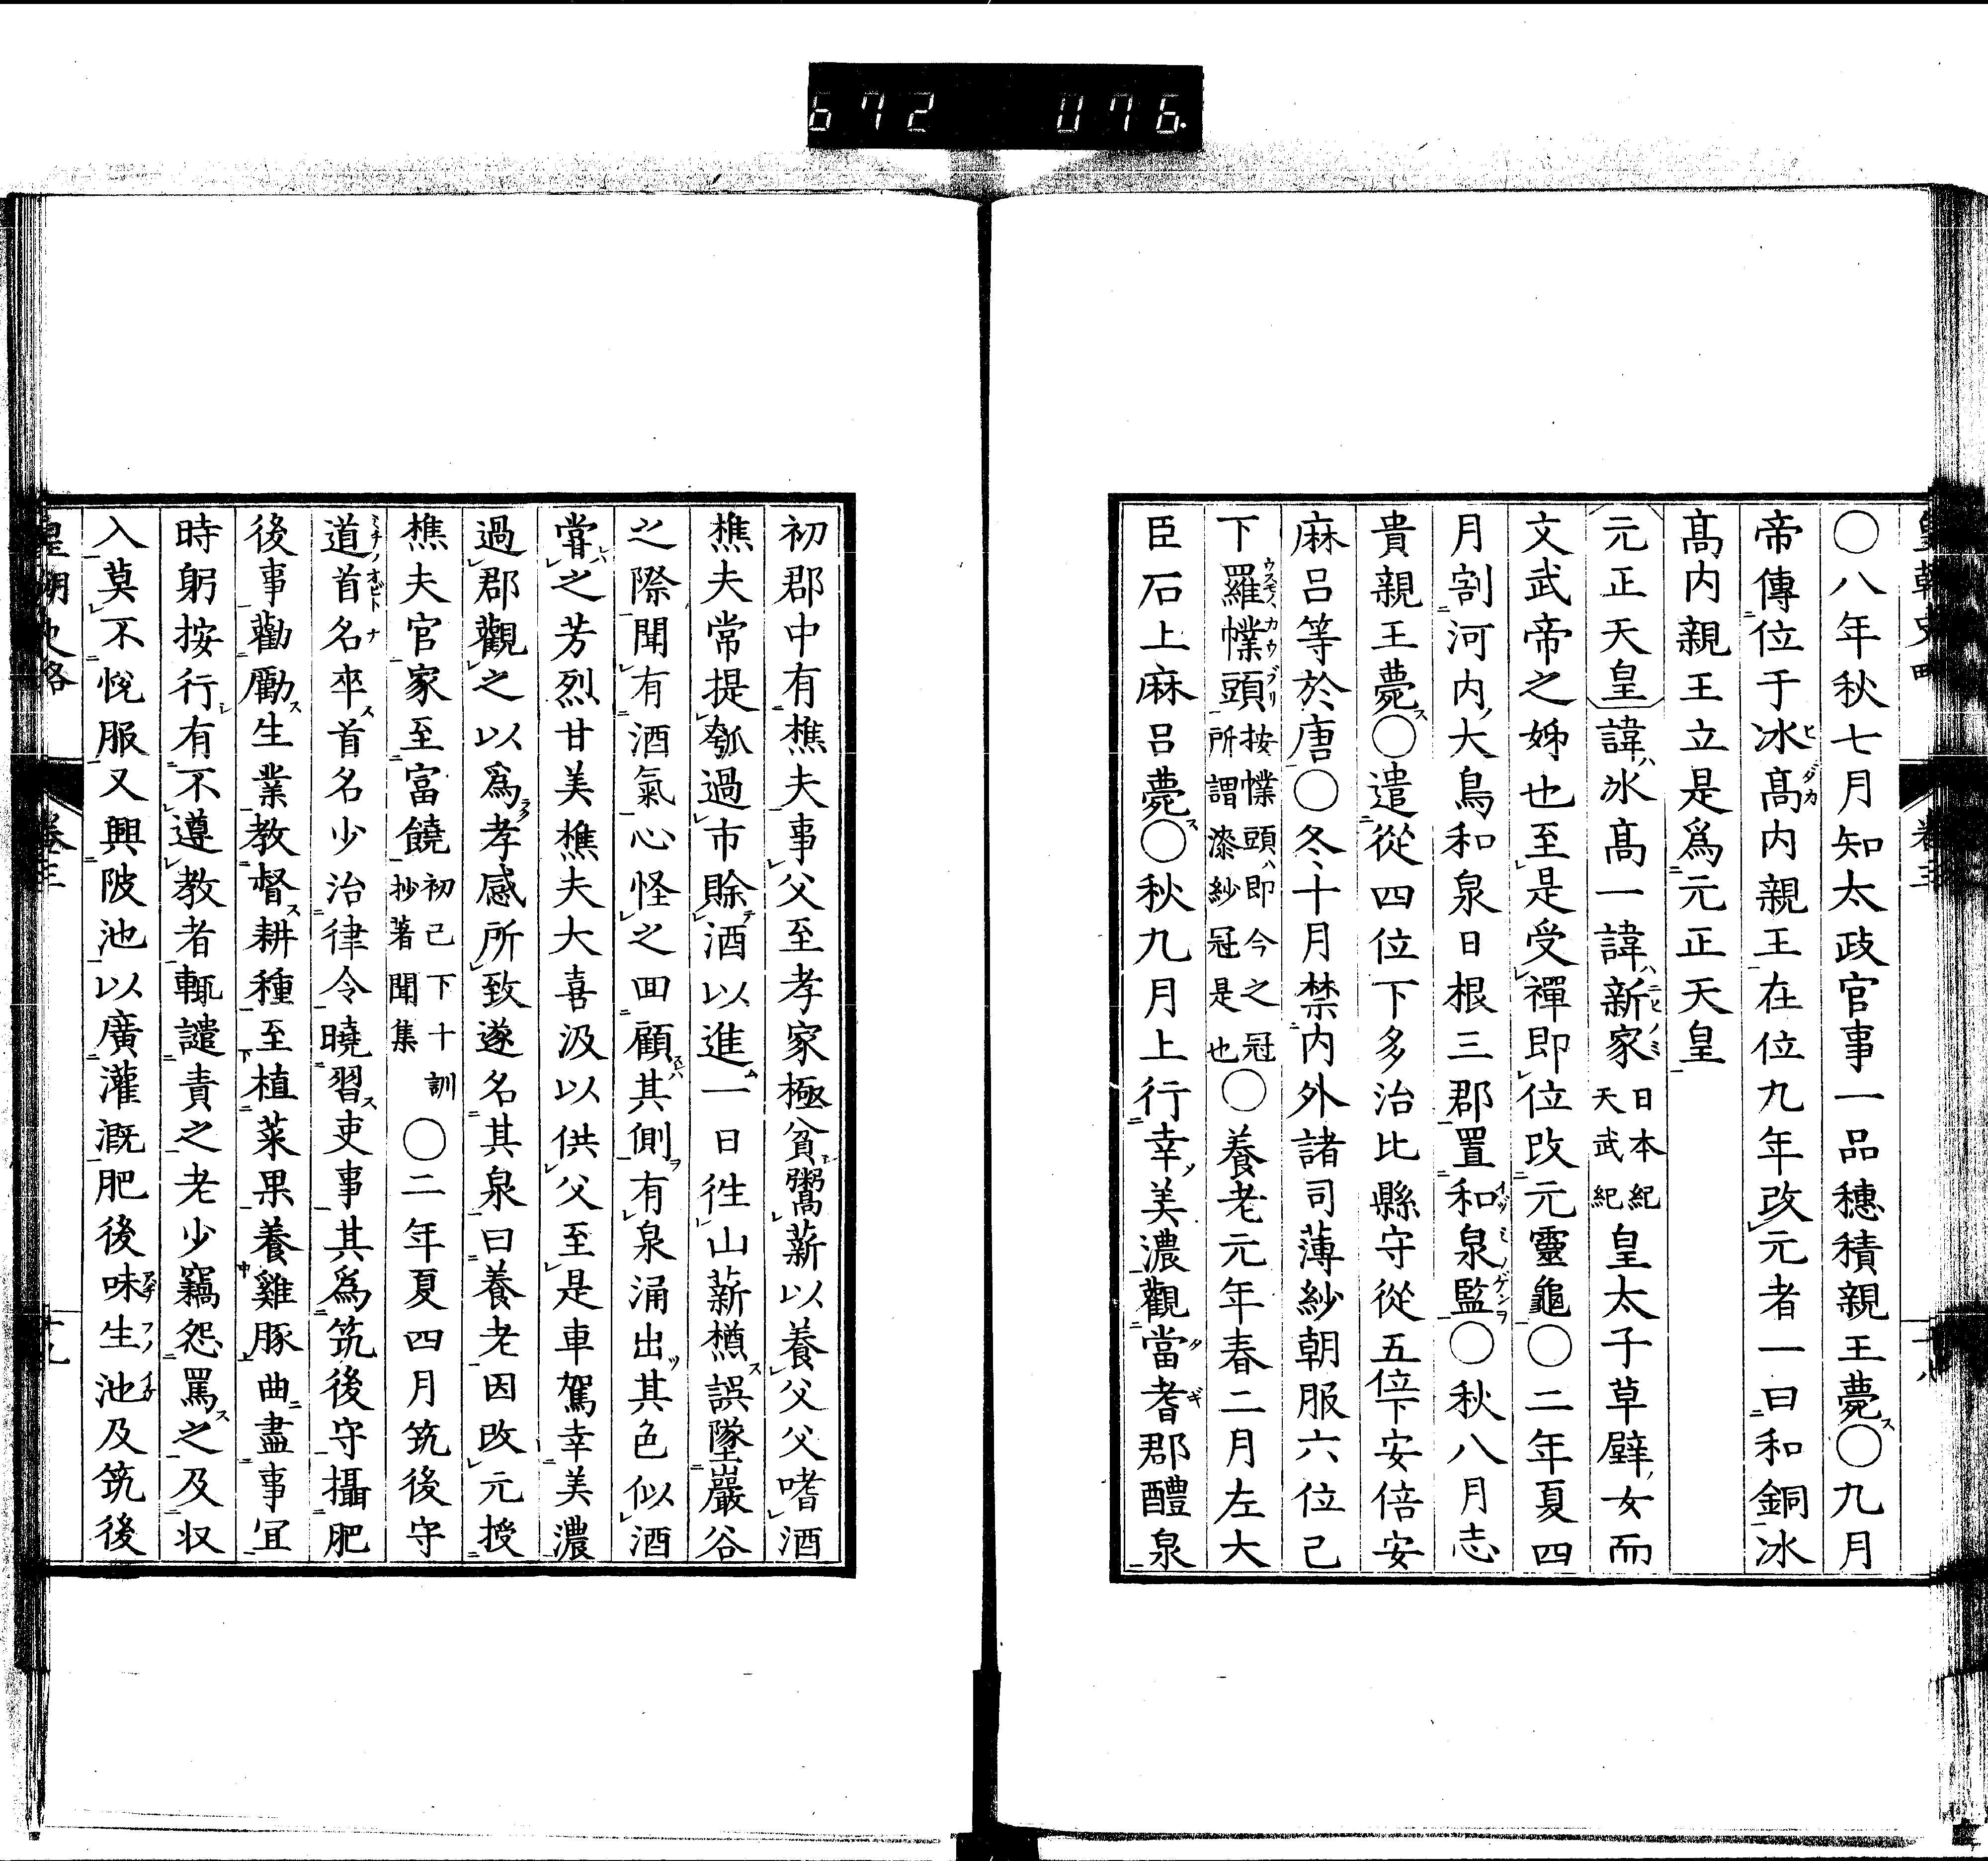 672 076
皇朝史略 卷三 十八
〇八年秋七月知太政官事一品穗積親王薨〇九月
帝傳位于冰高内親王在位九年改元者一曰和銅冰
高内親王立是爲元正天皇
元正天皇諱冰高一諱新家日本紀天武紀皇太子草壁女而
文武帝之姊也至是受禪即位改元靈龜〇二年夏四
月割河内大鳥和泉日根三郡置和泉監〇秋八月志
貴親王薨〇遣從四位下多治比縣守從五位下安倍安
麻呂等於唐〇冬十月禁内外諸司薄紗朝服六位已
下羅幞頭按幞頭即今之冠所謂漆紗冠是也〇養老元年春二月左大
臣石上麻呂薨〇秋九月上行幸美濃觀當耆郡醴泉
初郡中有樵夫事父至孝家極貧鬻薪以養父父嗜酒
樵夫常提瓠過市賒酒以進一日徃山薪樵誤墜巖谷
之際聞有酒氣心怪之回顧其側有泉涌出其色似酒
嘗之芳烈甘美樵夫大喜汲以供父至是車駕幸美濃
過郡觀之以爲孝感所致遂名其泉曰養老因改元授
樵夫官家至富饒初已下十訓抄著聞集〇二年夏四月筑後守
道首名卒首名少治律令曉習吏事其爲筑後守攝肥
後事勸勵生業教督耕種至植菜果養雞豚曲盡事宜
時躬按行有不遵教者輒譴責之老少竊怨罵之及収
入莫不悅服又興陂池以廣灌漑肥後味生池及筑後
皇朝史略 卷三 十九